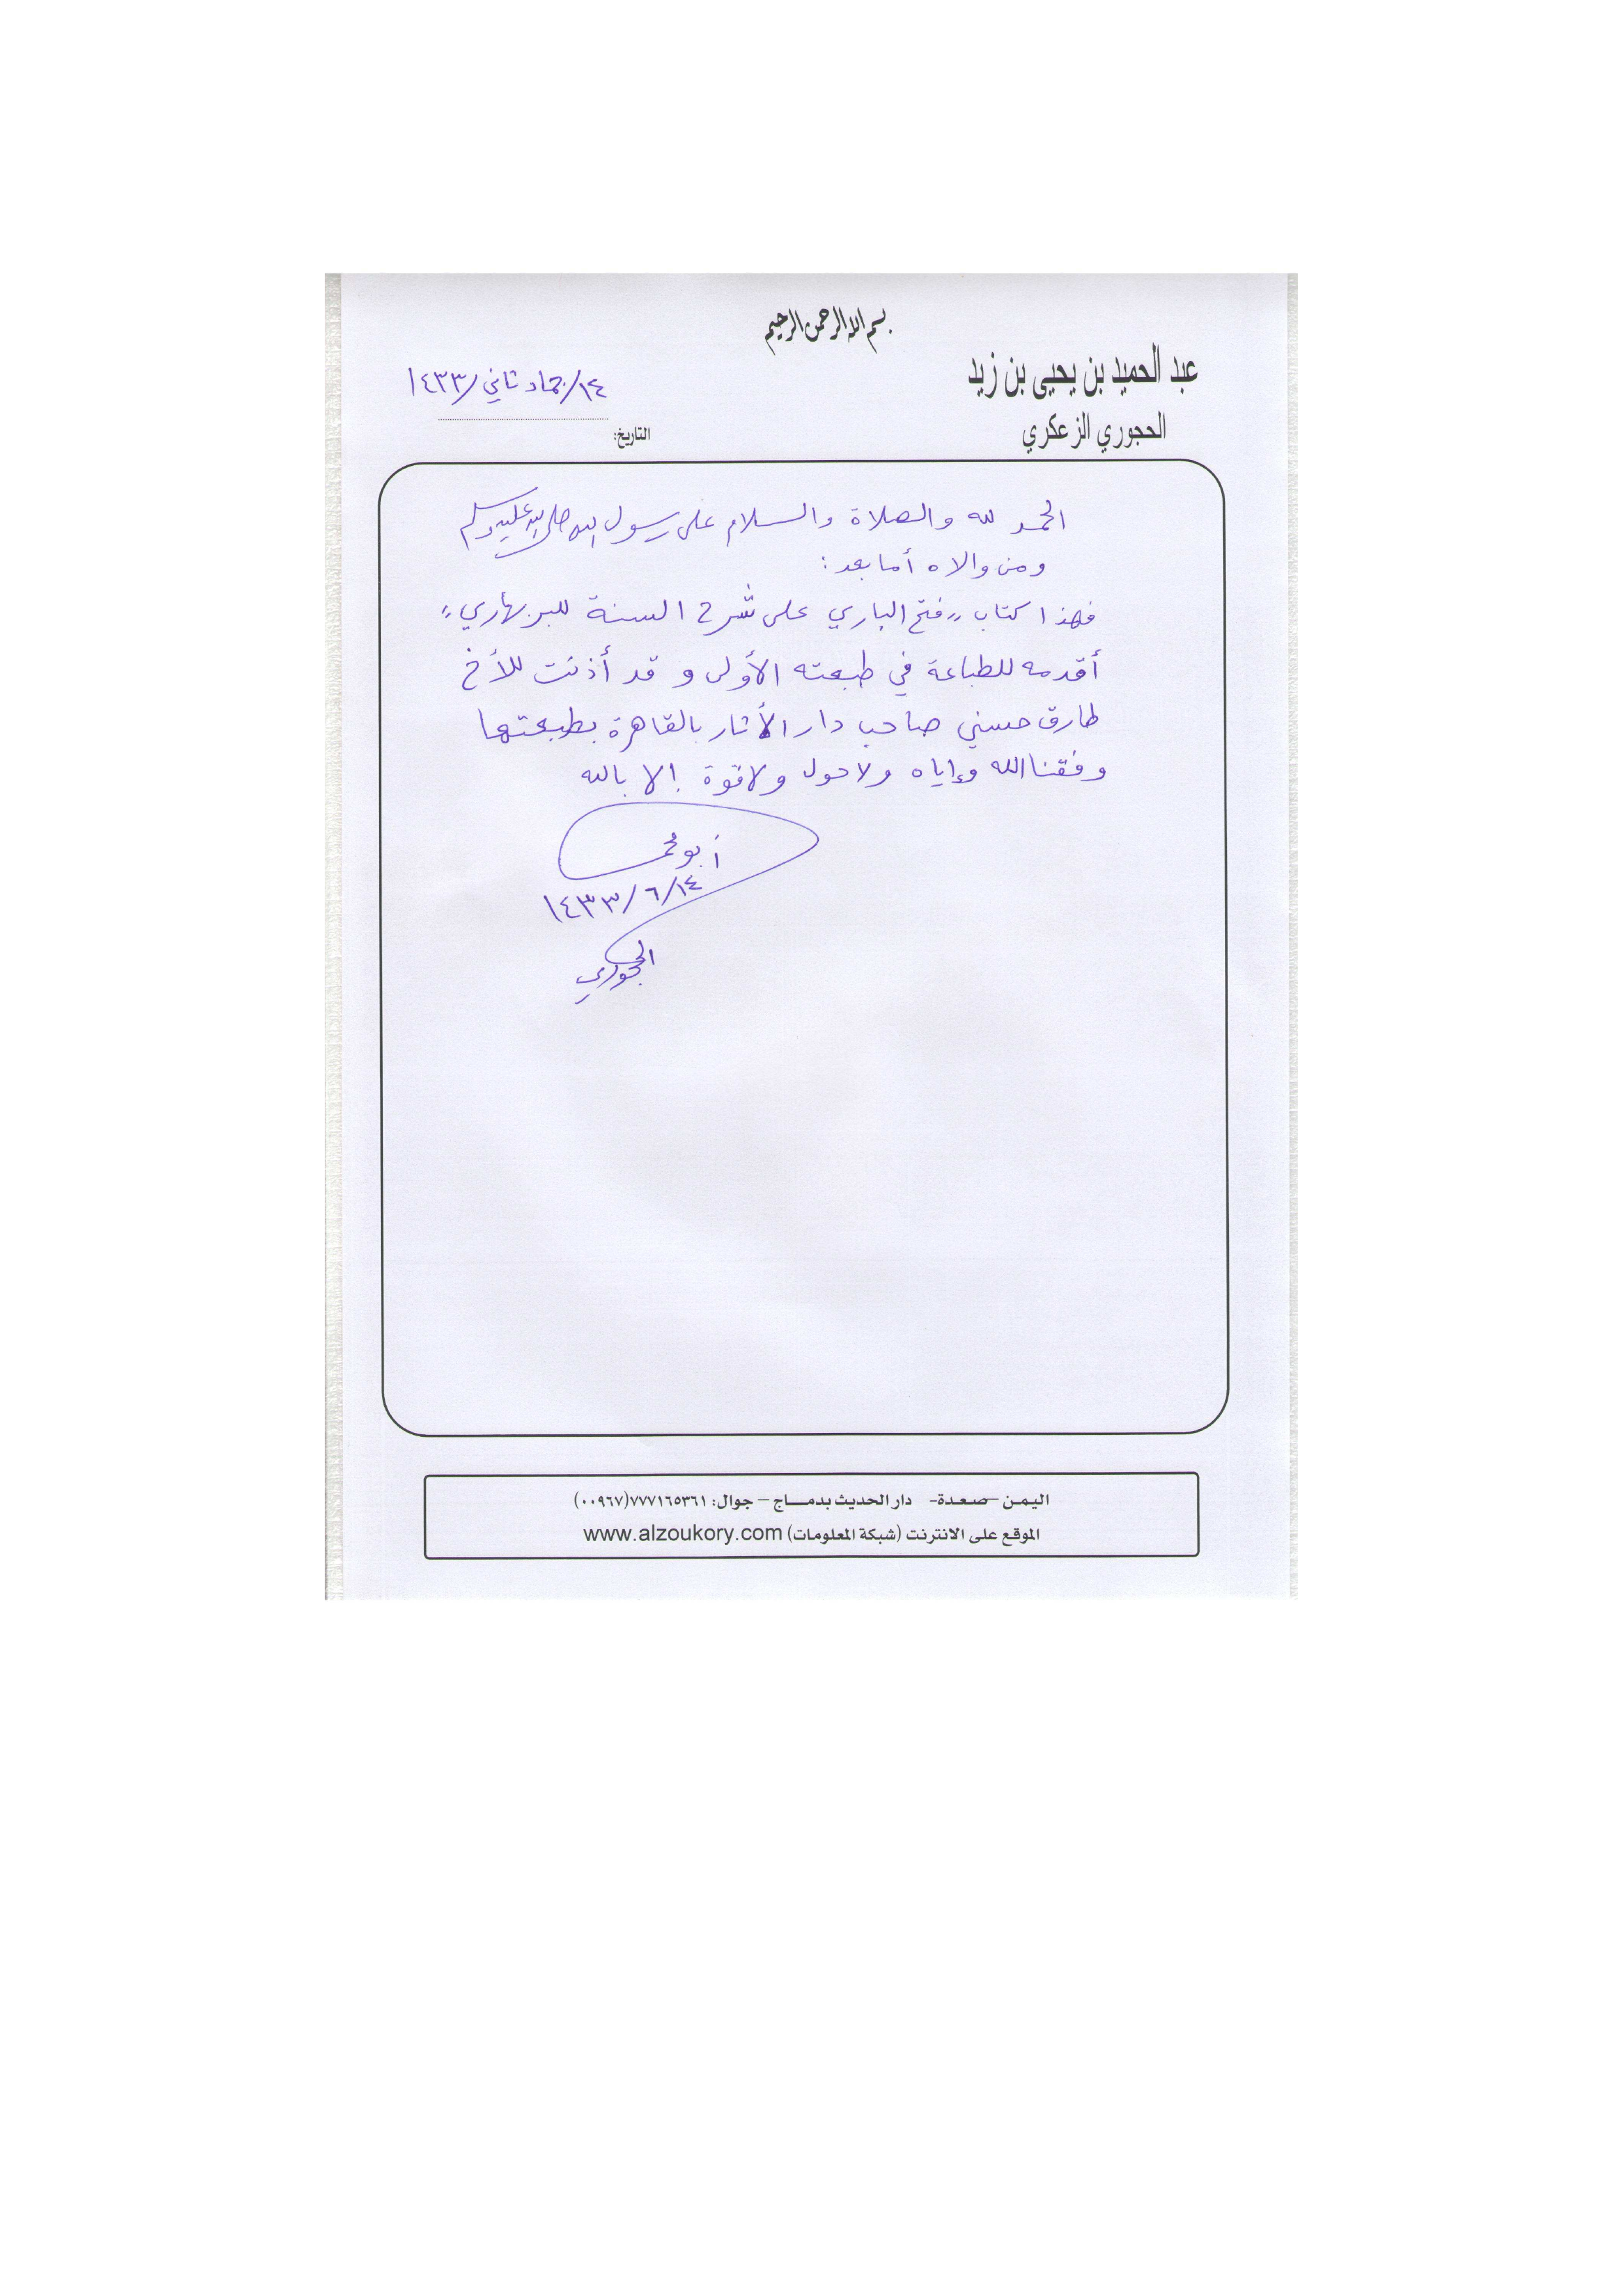 بسم الله الرحمن الرحيم
عبد الحميد بن يحيى بن زيد
الحجوري الزعكري
١٤/جماد ثاني/١٤٣٣
التاريخ:
الحمد لله والصلاة والسلام على رسول الله صلى الله عليه وسلم
ومن والاه أما بعد:
فهذا كتاب "فتح الباري على شرح السنة للبربهاري"
أقدمه للطباعة في طبعته الأولى وقد أذنت للأخ
طارق حسني صاحب دار الآثار بالقاهرة بطبعتها
وفقنا الله وإياه ولا حول ولا قوة إلا بالله
أبو محمد
١٤/٦/١٤٣٣
الحجوري
اليمن - صعدة - دار الحديث بدماج - جوال: ٧٧٧١٦٥٣٦١(٠٠٩٦٧)
الموقع على الانترنت (شبكة المعلومات) www.alzoukory.com